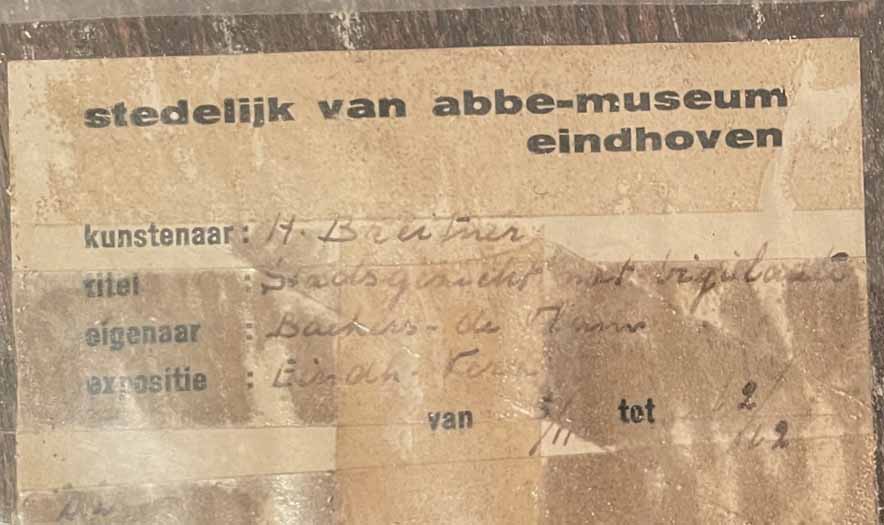 stedelijk van abbe-museum
eindhoven
kunstenaar: H. Breitner
titel : Stadsgezicht met
eigenaar : Backers - de
expositie : Eindh.
van 5/11 tot 2/12